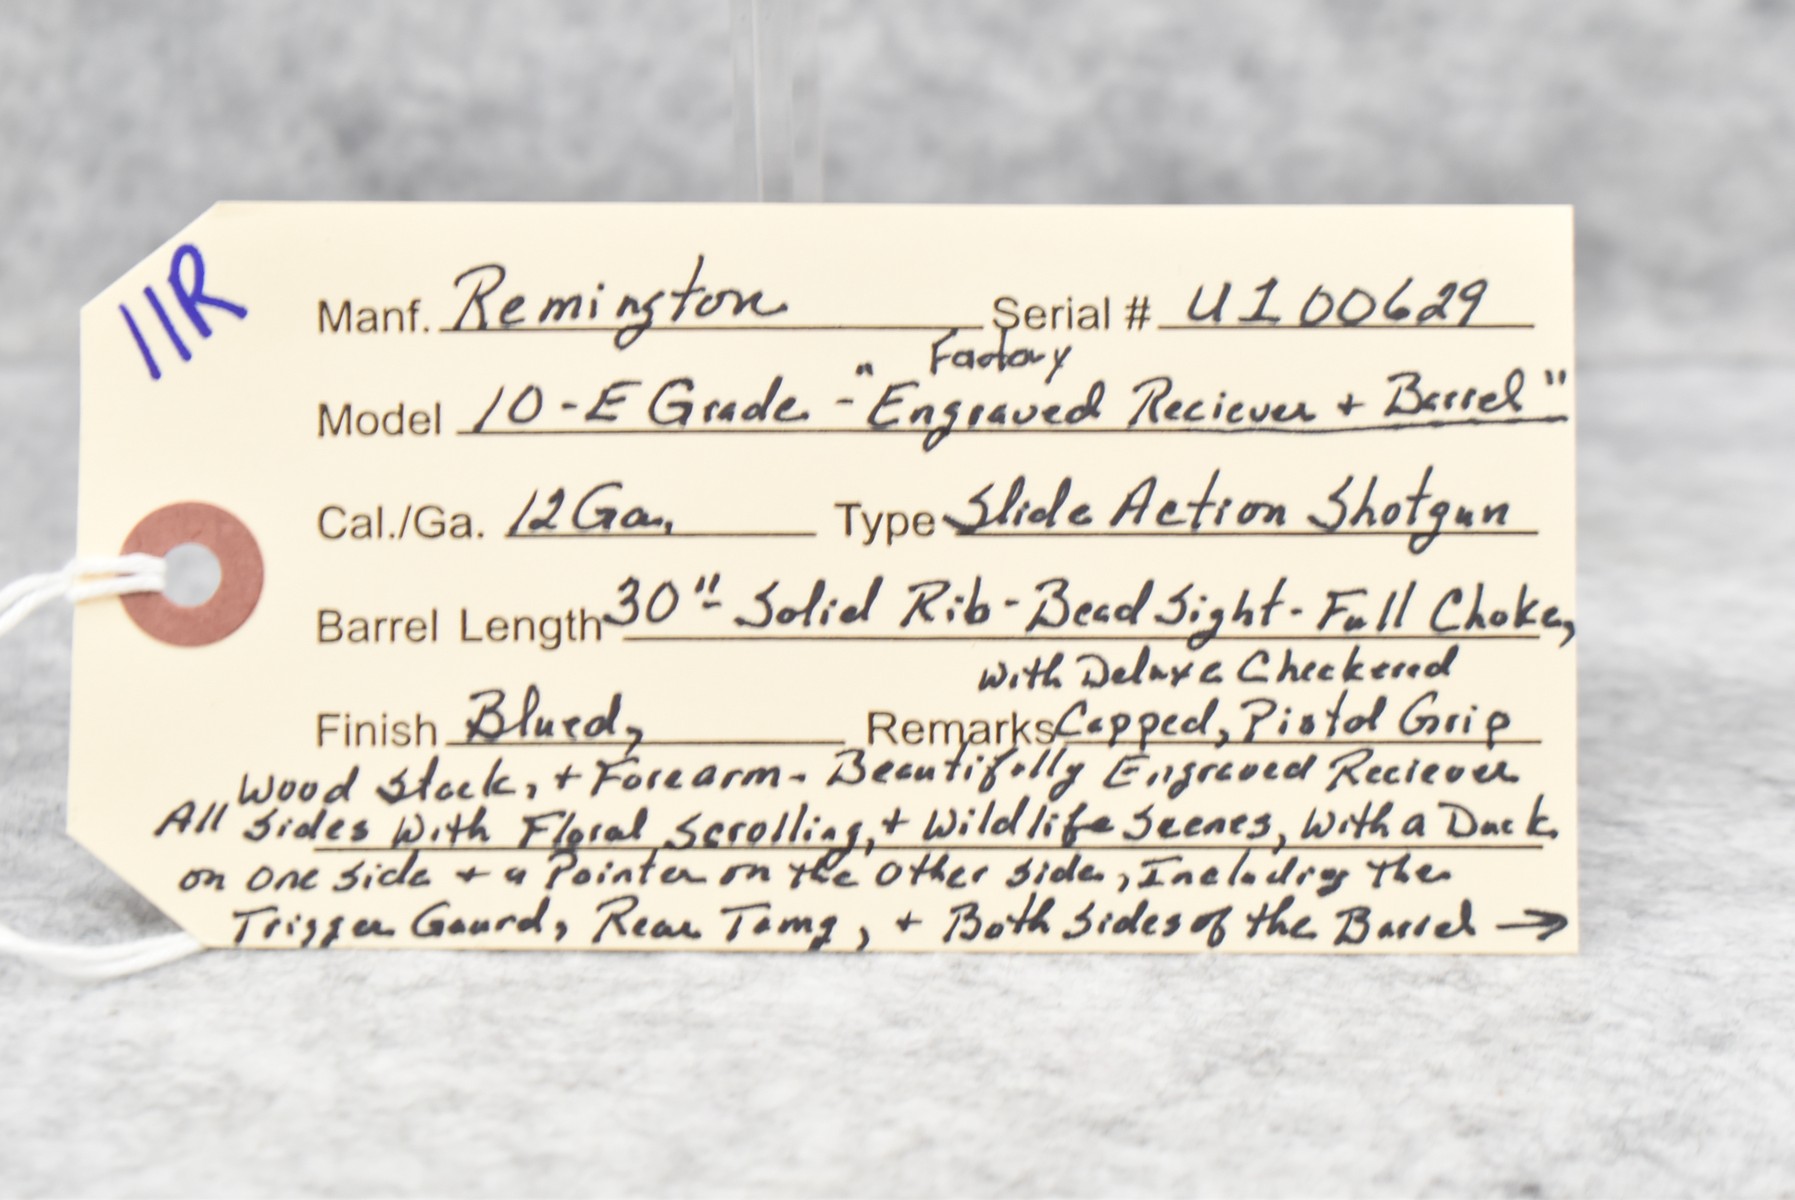 11R
Manf. Remington Serial # U100629
Factory
Model 10-E Grade - "Engraved Reciever + Barrel"
Cal./Ga. 12 Ga. Type Slide Action Shotgun
Barrel Length 30"- Solid Rib - Bead Sight - Full Choke,
with Deluxe Checkered
Finish Blued, Remarks Capped, Pistol Grip
Wood Stock, + Forearm - Beautifully Engraved Reciever
All Sides With Floral Scrolling, + Wildlife Scenes, With a Duck
on one side + a Pointer on the Other Side, Including the
Trigger Gaurd, Rear Tang, + Both Sides of the Barrel →